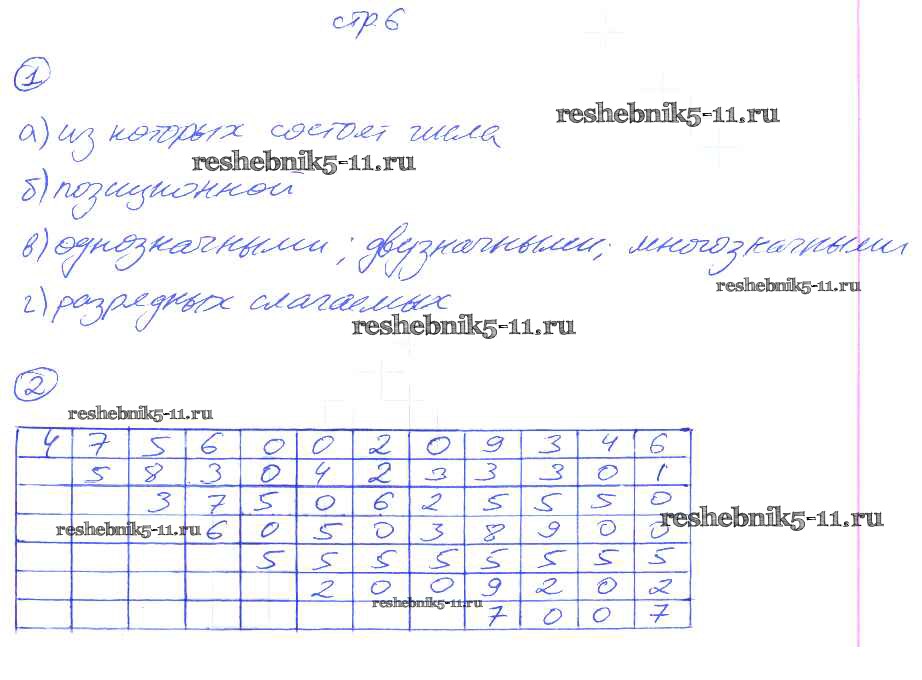 стр. 6
1
а) из которых состоят числа
reshebnik5-11.ru
reshebnik5-11.ru
б) позиционной
в) однозначными; двузначными; многозначными
reshebnik5-11.ru
г) разрядных слагаемых
reshebnik5-11.ru
2
reshebnik5-11.ru
4 7 5 6 0 0 2 0 9 3 4 6
5 8 3 0 4 2 3 3 3 0 1
3 7 5 0 6 2 5 5 5 0
reshebnik5-11.ru
6 0 5 0 3 8 9 0 0
reshebnik5-11.ru
5 5 5 5 5 5 5 5
2 0 0 9 2 0 2
reshebnik5-11.ru
7 0 0 7